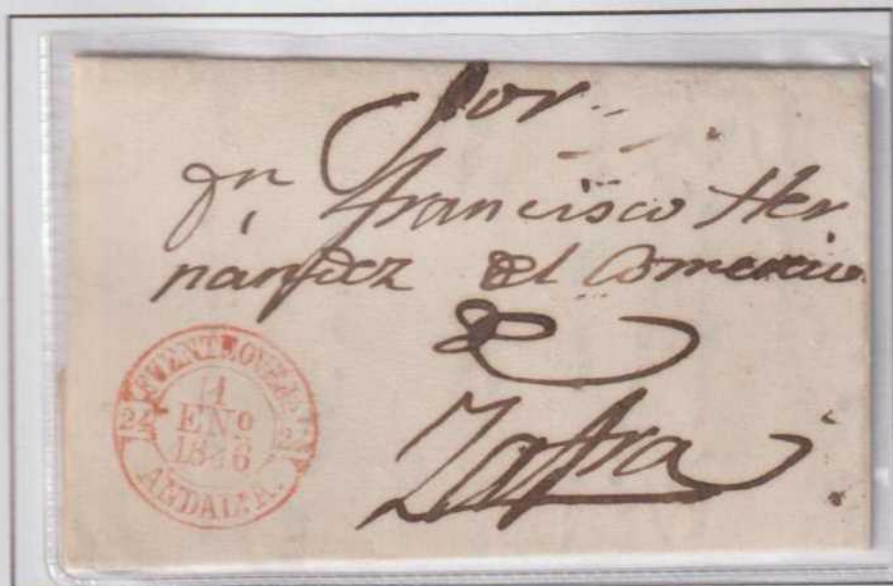 Sor
Dn Francisco Her
nández del Comercio
de
Zafra
FUENTEOVEJUNA
24 24
11
ENO
1846
ANDAL.A.